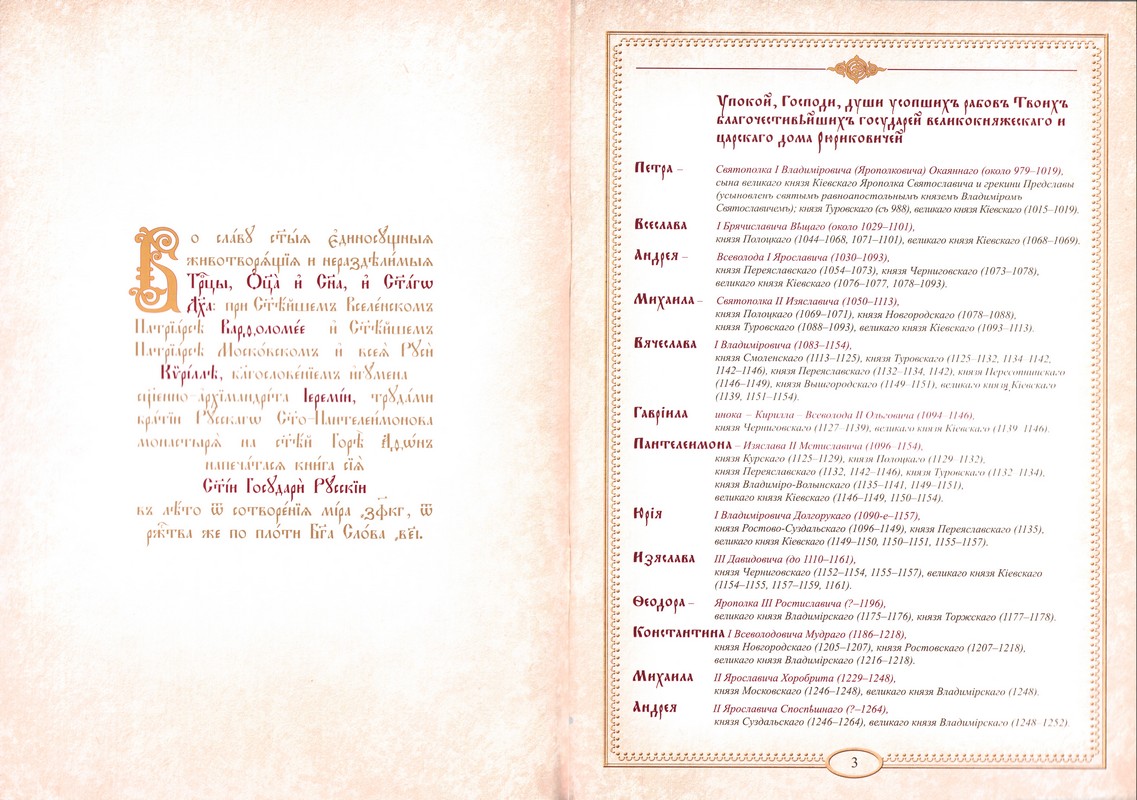 Во сла́вꙋ ст҃ы́ѧ є҆диносꙋ́щныѧ
животворѧ́щїѧ и нераздѣ́лимыѧ
Трⷪ҇цы, Ѻ҆ц҃а̀ и҆ Сн҃а, и҆ Ст҃а́гѡ
Дх҃а: при Ст҃ѣ́йшемъ Вселе́нскомъ
Патрїа́рсѣ Варѳоломе́е и҆ Ст҃ѣ́йшемъ
Патрїа́рсѣ Моско́вскомъ и҆ всеѧ̀ Рꙋсѝ
Кѷрі́ллѣ, бл҃гослове́нїемъ и҆гꙋ́мена
сщ҃е́нно-а҆рхїмандрі́та Іеремі́и, трꙋда́ми
бра́тїи Рꙋ́сскагѡ Ст҃о-Пантелеи́монова
монастырѧ̀ на ст҃ѣ́й Горѣ̀ Аѳѡ́нъ
напеча́тасѧ кни́га сїѧ̀
Ст҃і́и Госꙋда́ри Рꙋ́сскїи
въ лѣ́то ѿ сотворе́нїѧ мі́ра ҂зфк҃г, ѿ
рж҇тва̀ же по пло́ти Бг҃а Сло́ва ҂ве҃і.
Упокой, Господи, души усопшихъ рабовъ Твоихъ
благочестивѣйшихъ государей великокняжескаго и
царскаго дома Рюриковичей
Петра – Святополка I Владиміровича (Ярополковича) Окаяннаго (около 979–1019),
сына великаго князя Кіевскаго Ярополка Святославича и грекини Предславы
(усыновленъ святымъ равноапостольнымъ княземъ Владиміромъ
Святославичемъ); князя Туровскаго (съ 988), великаго князя Кіевскаго (1015–1019).
Всеслава I Брячиславича Вѣщаго (около 1029–1101),
князя Полоцкаго (1044–1068, 1071–1101), великаго князя Кіевскаго (1068–1069).
Андрея – Всеволода I Ярославича (1030–1093),
князя Переяславскаго (1054–1073), князя Черниговскаго (1073–1078),
великаго князя Кіевскаго (1076–1077, 1078–1093).
Михаила – Святополка II Изяславича (1050–1113),
князя Полоцкаго (1069–1071), князя Новгородскаго (1078–1088),
князя Туровскаго (1088–1093), великаго князя Кіевскаго (1093–1113).
Вячеслава I Владиміровича (1083–1154),
князя Смоленскаго (1113–1125), князя Туровскаго (1125–1132, 1134–1142,
1142–1146), князя Переяславскаго (1132–1134, 1142), князя Пересопницкаго
(1146–1149), князя Вышгородскаго (1149–1151), великаго князя Кіевскаго
(1139, 1151–1154).
Гавріила инока – Кирилла – Всеволода II Ольговича (1094–1146),
князя Черниговскаго (1127–1139), великаго князя Кіевскаго (1139–1146).
Пантелеимона – Изяслава II Мстиславича (1096–1154),
князя Курскаго (1125–1129), князя Полоцкаго (1129–1132),
князя Переяславскаго (1132, 1142–1146), князя Туровскаго (1132–1134),
князя Владиміро-Волынскаго (1135–1141, 1149–1151),
великаго князя Кіевскаго (1146–1149, 1150–1154).
Юрія I Владиміровича Долгорукаго (1090-е–1157),
князя Ростово-Суздальскаго (1096–1149), князя Переяславскаго (1135),
великаго князя Кіевскаго (1149–1150, 1150–1151, 1155–1157).
Изяслава III Давидовича (до 1110–1161),
князя Черниговскаго (1152–1154, 1155–1157), великаго князя Кіевскаго
(1154–1155, 1157–1159, 1161).
Ѳеодора – Ярополка III Ростиславича (?–1196),
великаго князя Владимірскаго (1175–1176), князя Торжскаго (1177–1178).
Константина I Всеволодовича Мудраго (1186–1218),
князя Новгородскаго (1205–1207), князя Ростовскаго (1207–1218),
великаго князя Владимірскаго (1216–1218).
Михаила II Ярославича Хоробрита (1229–1248),
князя Московскаго (1246–1248), великаго князя Владимірскаго (1248).
Андрея II Ярославича Споспѣшнаго (?–1264),
князя Суздальскаго (1246–1264), великаго князя Владимірскаго (1248–1252).
3